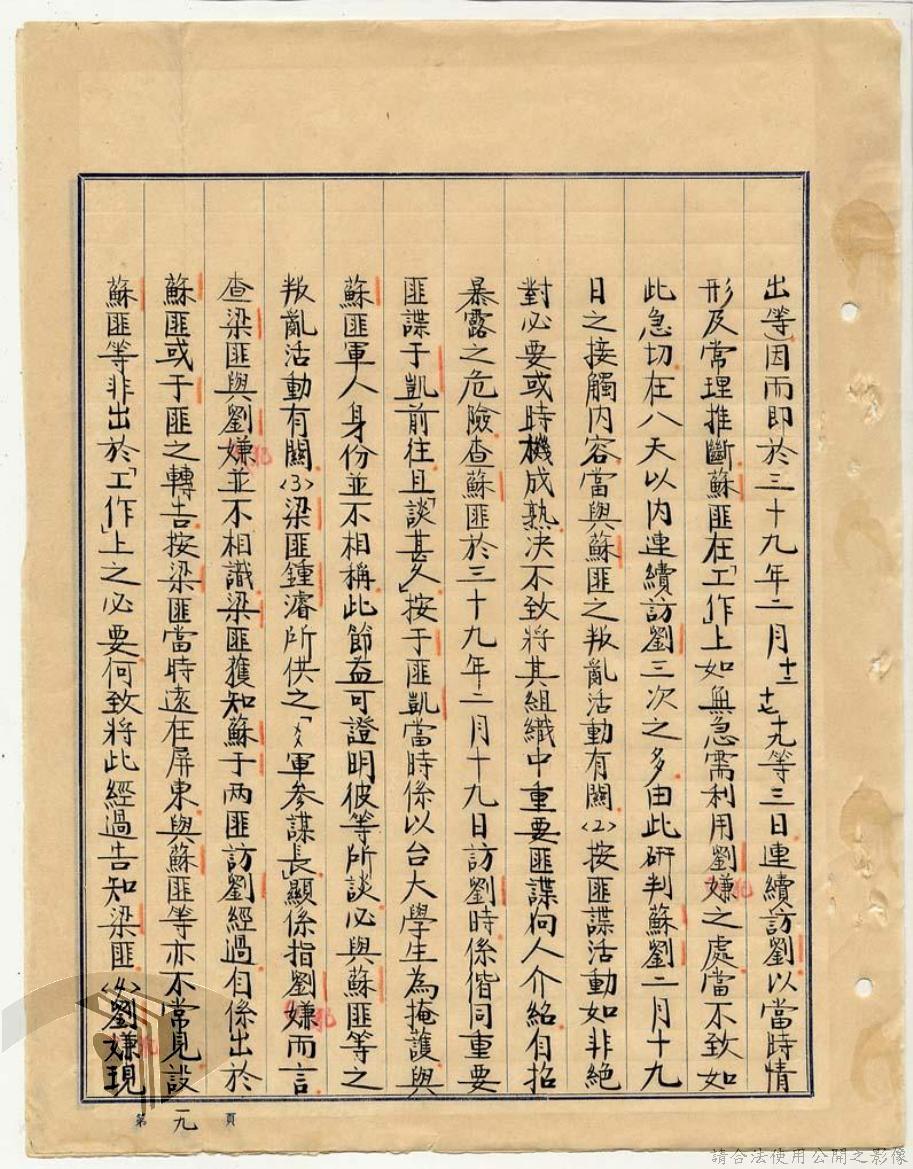 出等)因而即於三十九年二月十三十七十九等三日連續訪劉以當時情
形及常理推斷蘇匪在「工作」上如無急需利用劉嫌之處當不致如
此急切在八天以內連續訪劉三次之多由此研判蘇劉二月十九
日之接觸內容當與蘇匪之叛亂活動有關<2>按匪諜活動如非絕
對必要或時機成熟決不致將其組織中重要匪諜向人介紹自招
暴露之危險查蘇匪於三十九年二月十九日訪劉時係偕同重要
匪諜于凱前往且「談甚久」按于匪凱當時係以台大學生為掩護與
蘇匪軍人身份並不相稱此節益可證明彼等所談必與蘇匪等之
叛亂活動有關<3>梁匪鍾濬所供之「ㄨㄨ軍參謀長」顯係指劉嫌而言
查梁匪與劉嫌並不相識梁匪獲知蘇于两匪訪劉經過自係出於
蘇匪或于匪之轉告按梁匪當時遠在屏東與蘇匪等亦不常見設
蘇匪等非出於「工作」上之必要何致將此經過告知梁匪<4>劉嫌現
第一九頁
請合法使用公開之影像